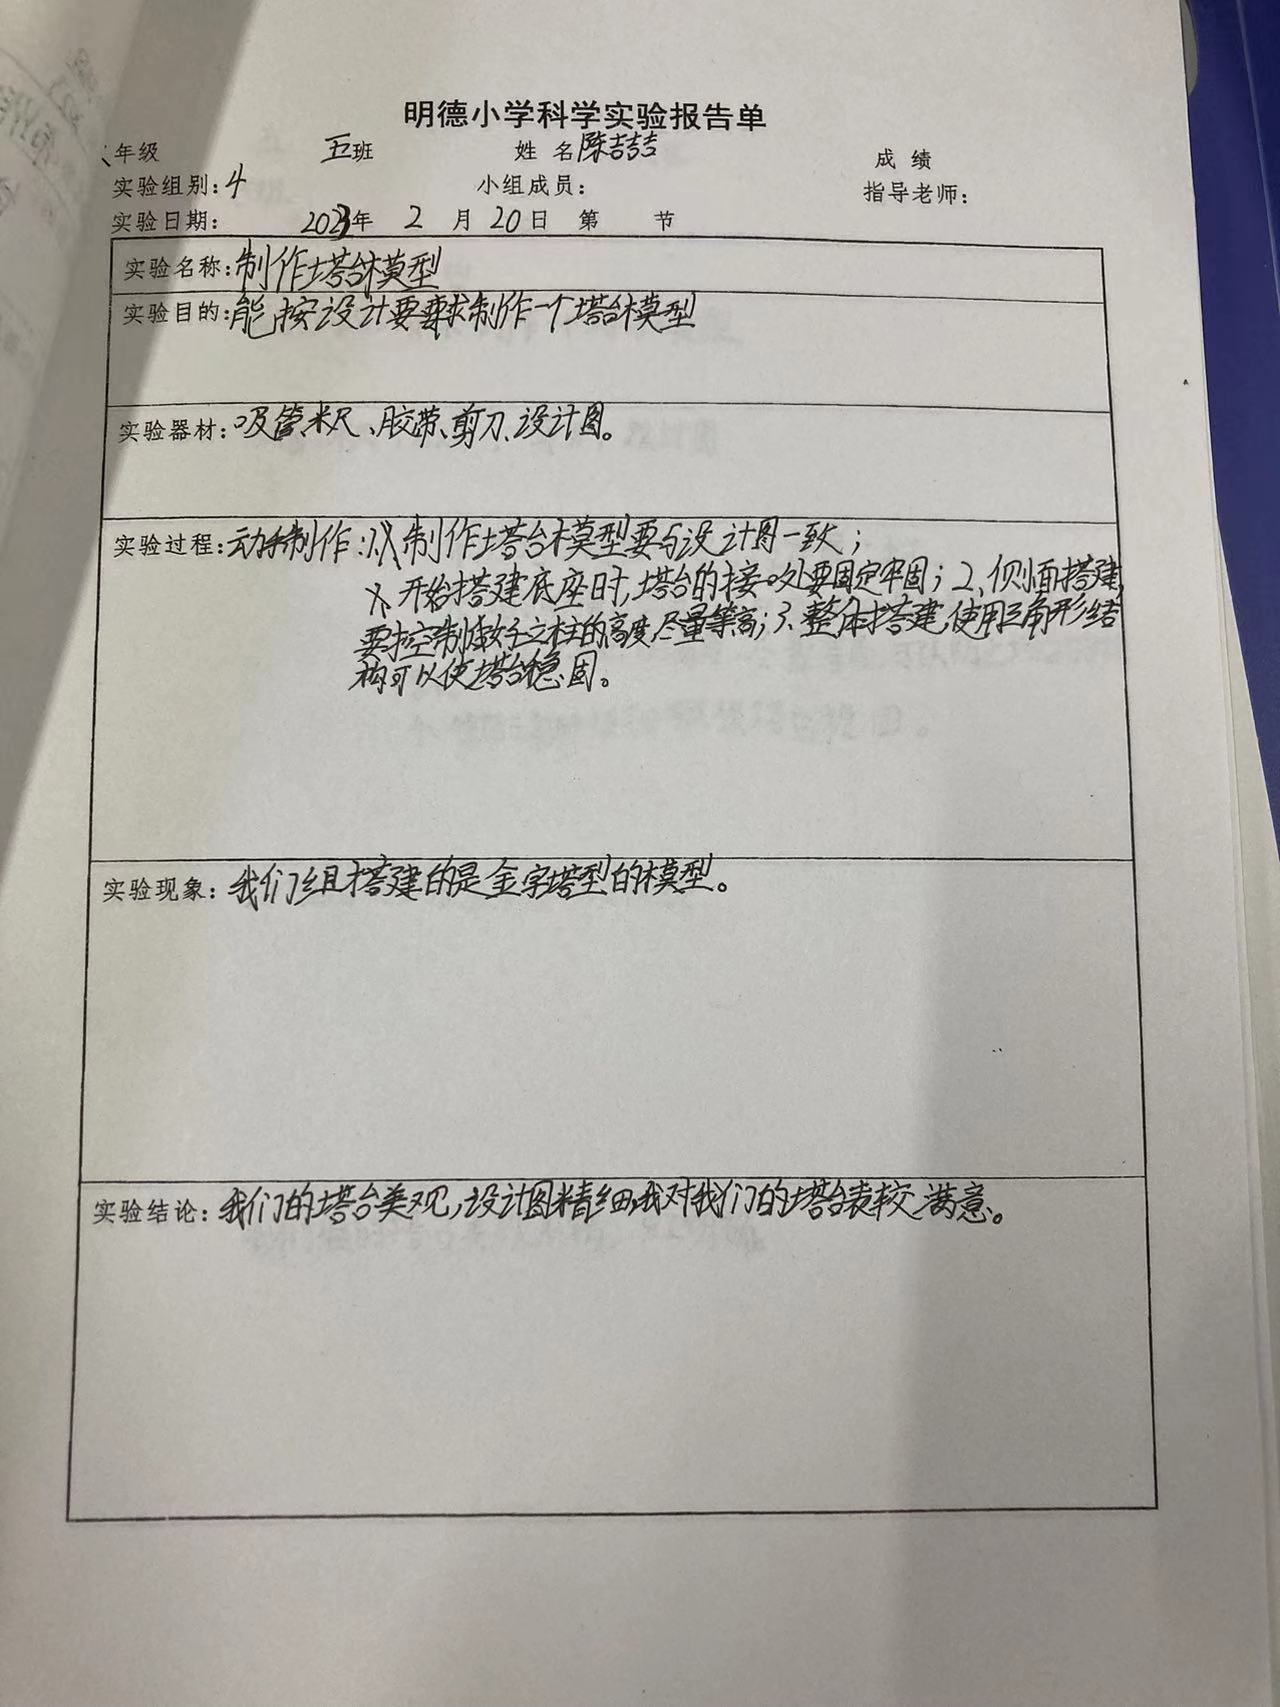 明德小学科学实验报告单
年级 五班 姓名陈喆喆 成绩
实验组别:4 小组成员: 指导老师:
实验日期: 2023年 2 月 20日 第 节
实验名称:制作塔台模型
实验目的:能按设计要求制作一个塔台模型
实验器材:吸管、米尺、胶带、剪刀、设计图。
实验过程:动手制作:制作塔台模型要与设计图一致;
开始搭建底座时,塔台的接口处要固定牢固;2、侧面搭建,
要控制好立柱的高度尽量等高;3、整体搭建,使用三角形结
构可以使塔台稳固。
实验现象:我们组搭建的是金字塔型的模型。
实验结论:我们的塔台美观,设计图精细,我对我们的塔台表较满意。